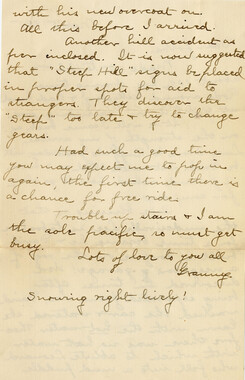 with his new overcoat on.
All this before I arrived.
Another hill accident as
per inclosed. It is now suggested
that "Steep Hill" signs be placed
in proper spots for aid to
strangers. They discover the
"Steep" too late & try to change
gears.
Had such a good time
you may expect me to pop in
again, the first time there is
a chance for free ride.
Trouble up stairs & I am
the sole pacific, so must get
busy.
Lots of love to you all
Snowing right lively!